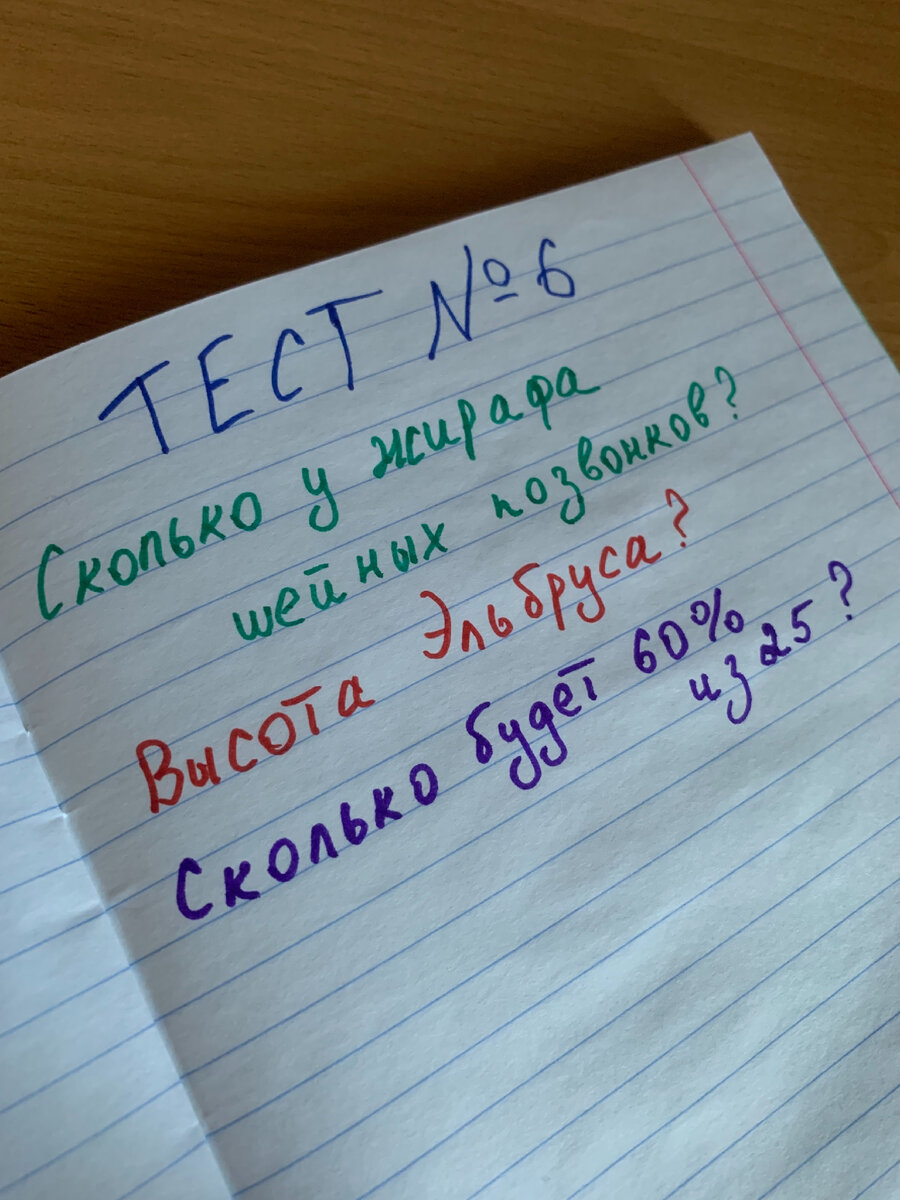 ТЕСТ № 6
Сколько у жирафа
шейных позвонков?
Высота Эльбруса?
Сколько будет 60%
из 25?